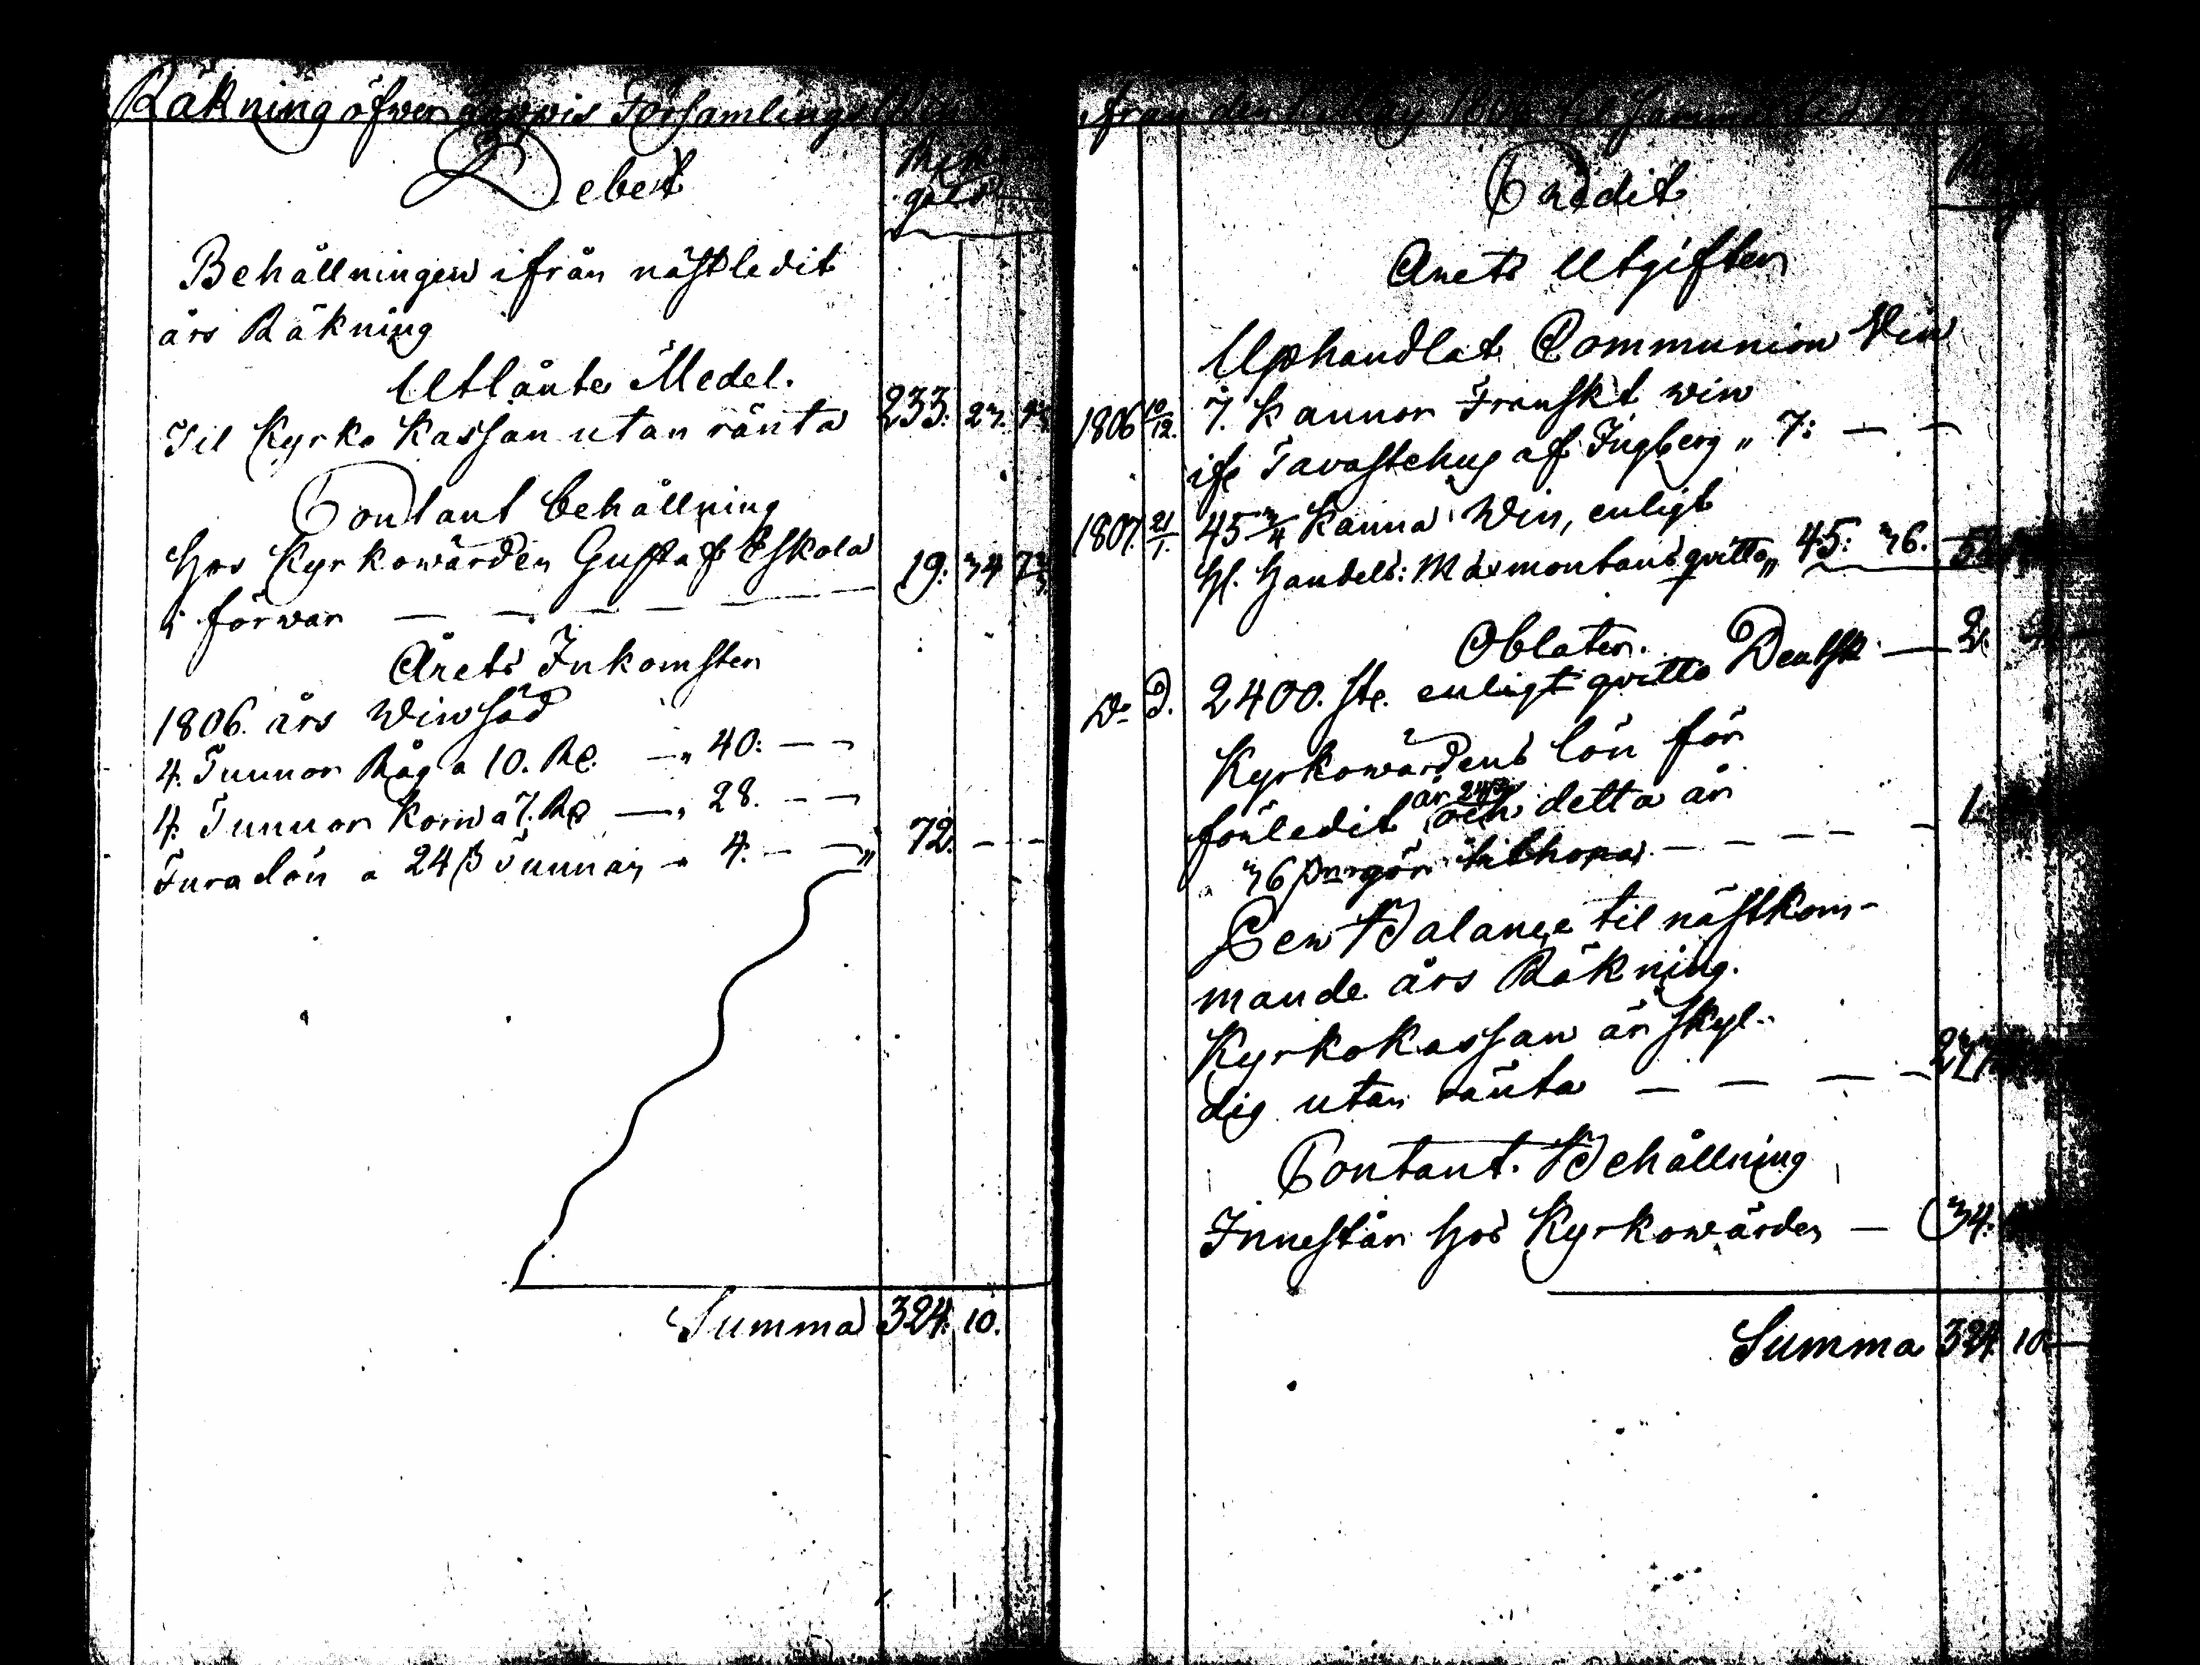 Räkning öfwer Församlings
Debet
Behållningen ifrån nästledit
års Räkning
Utlånte Medel.
Til Kyrko Kassan utan ränta 233: 23.
Contant behållning
hos Kyrkowärden Gustaf Eskola
i förwar — — — — — 19: 34
Årets Inkomster
1806. års Winsäd
4. Tunnor Råg a 10. R. — „ 40: — —
4. Tunnor Korn a 7. R — „ 28. — —
Fura lön a 24 ß Tunnan „ 4. — — „ 72. — —
Summa 324. 10.
från den May til samma tid
Credit
Årets Utgifter
Uphandlat Communion Vin
1806 10/12. 7. Kannor Franskt win
ifr Tavastehus af Ingberg „ 7: — —
1807. 21/1. 45 3/4 Kanna Win, enligt
H. Handels: qvitto „ 45: 36.
Oblater.
Do D. 2400. st. enligt qvitto — 2.
Kyrkowärdens lön för
förledit år 24 ß och detta år
36 ß gör tilhopa — — — — 1.
Balance til nästkom-
mande års Räkning.
Kyrkokassan är skyl-
dig utan ränta — — — —
Contant. Behållning
Innestår hos Kyrkowärden — 34.
Summa 324 10